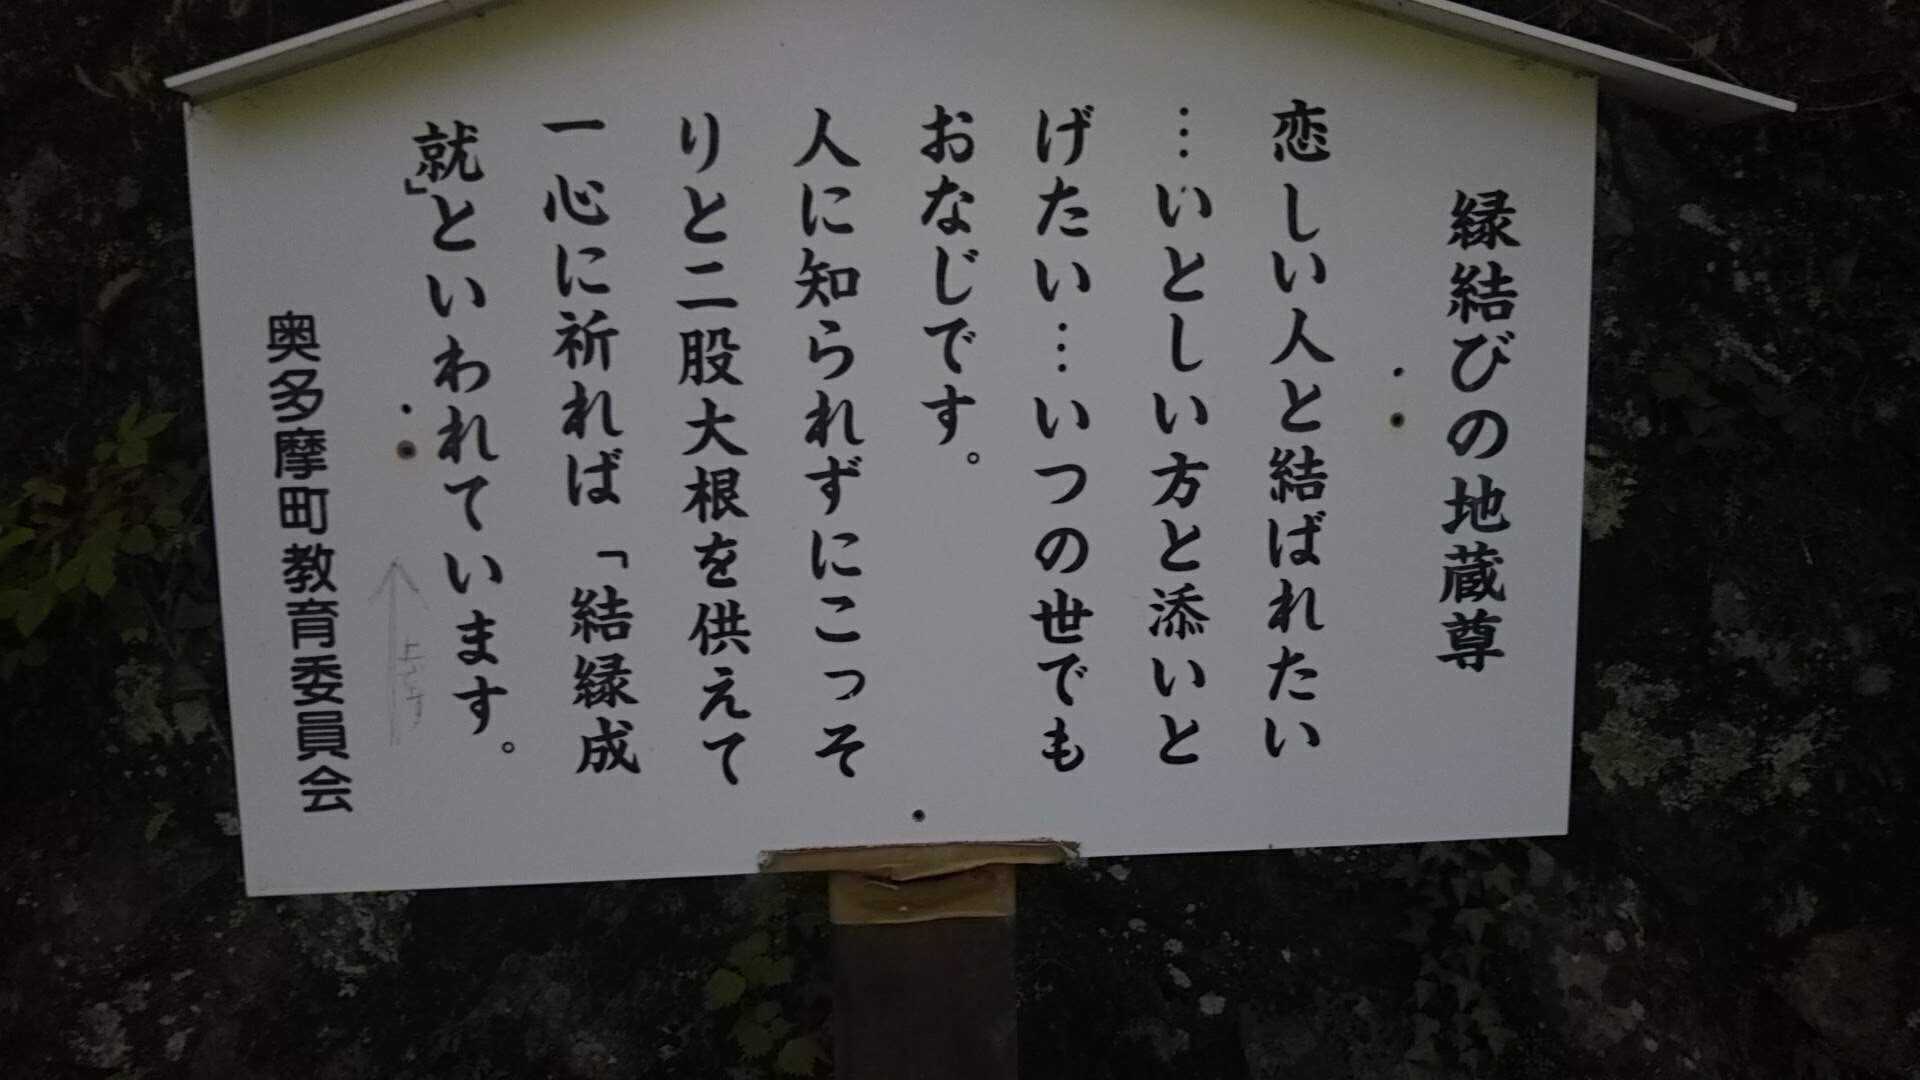 縁結びの地蔵尊
恋しい人と結ばれたい
…いとしい方と添いと
げたい…いつの世でも
おなじです。
人に知られずにこっそ
りと二股大根を供えて
一心に祈れば「結縁成
就」といわれています。
上です
奥多摩町教育委員会